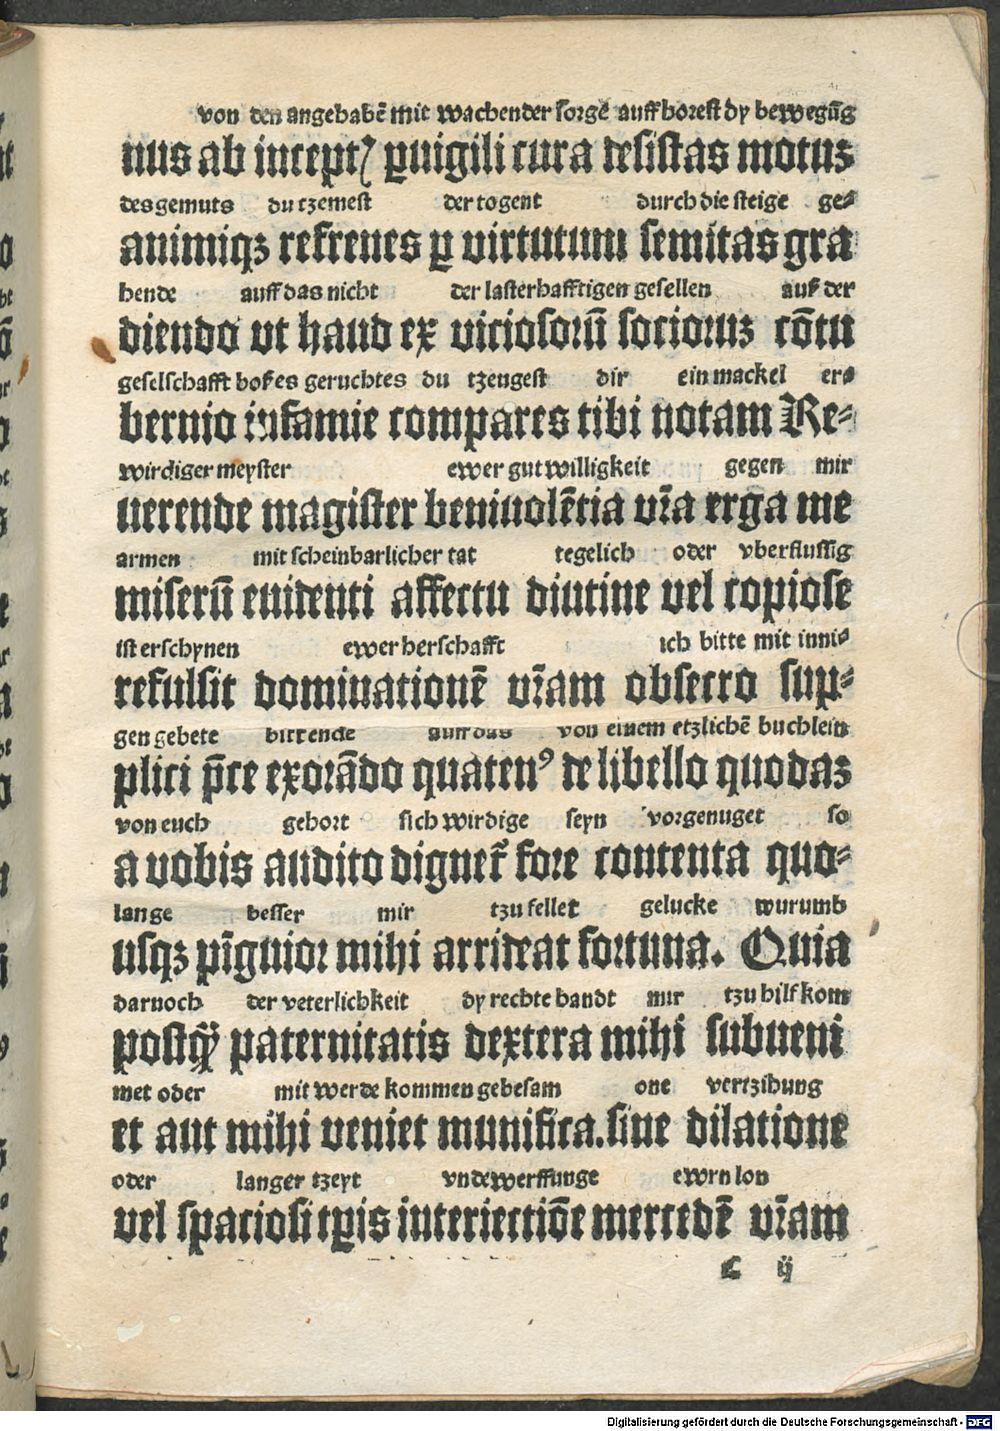 von den angehabē mit wachender sorgē auff horest dy bewegūg
nus ab inceptꝰ ꝑuigili cura desistas motus
des gemuts du tzemest der togent durch die steige ge⸗
animiqꝫ refrenes ꝑ virtutum semitas gra
hende auff das nicht der lasterhafftigen gesellen auß der
diendo vt haud ex viciosorū sociorum cōtu
geselschafft boßes geruchtes du tzeugest dir ein mackel er⸗
bernio infamie compares tibi notam Re⸗
wirdiger meyster ewer gutwilligkeit gegen mir
uerende magister beniuolētia vr̄a erga me
armen mit scheinbarlicher tat tegelich oder vberflussig
miserū euidenti affectu diutine vel copiose
ist erschynen ewer herschafft ich bitte mit inni⸗
refulsit dominationē vr̄am obsecro sup⸗
gen gebete bittende auff das von einem etzlichē buchlein
plici p̄ce exorādo quatenꝰ de libello quodaꝫ
von euch gehort sich wirdige seyn vorgenuget so
a vobis audito digner̄ fore contenta quo⸗
lange besser mir tzu fellet gelucke wurumb
usqꝫ pīguior mihi arrideat fortuna. Quia
darnoch der veterlichkeit dy rechte handt mir tzu hilf kom
postꝙ̄ paternitatis dextera mihi subueni
met oder mit werde kommen gebesam one vertzihung
et aut mihi veniet munifica. sine dilatione
oder langer tzeyt vndewerffunge ewrn lon
vel spaciosi tꝑis interiectiōe mercedē vr̄am
c ij
Digitalisierung gefördert durch die Deutsche Forschungsgemeinschaft - DFG